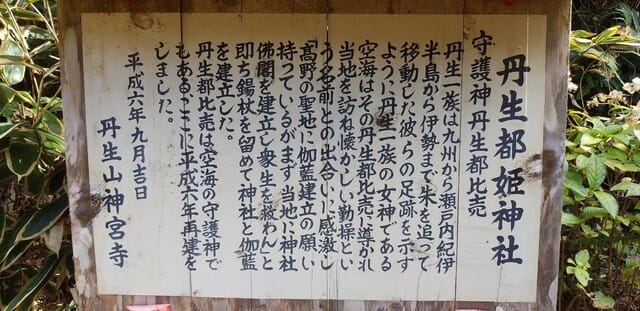 丹生都姫神社
守護神丹生都比売
丹生一族は九州から瀬戸内紀伊
半島から伊勢まで朱を追って
移動した彼らの足跡を示す
ように丹生一族の女神である
空海はその丹生都比売に導かれ
当地を訪ね懐かしい勤操とい
う名前との出合いに感激し
「高野の聖地に伽藍建立の願い
持っているがまず当地に神社
佛閣を建立し衆生を救わん」と
即ち錫杖を留めて神社と伽藍
を建立した。
丹生都比売は空海の守護神で
もあるここに平成六年再建を
しました。
平成六年九月吉日
丹生山神宮寺